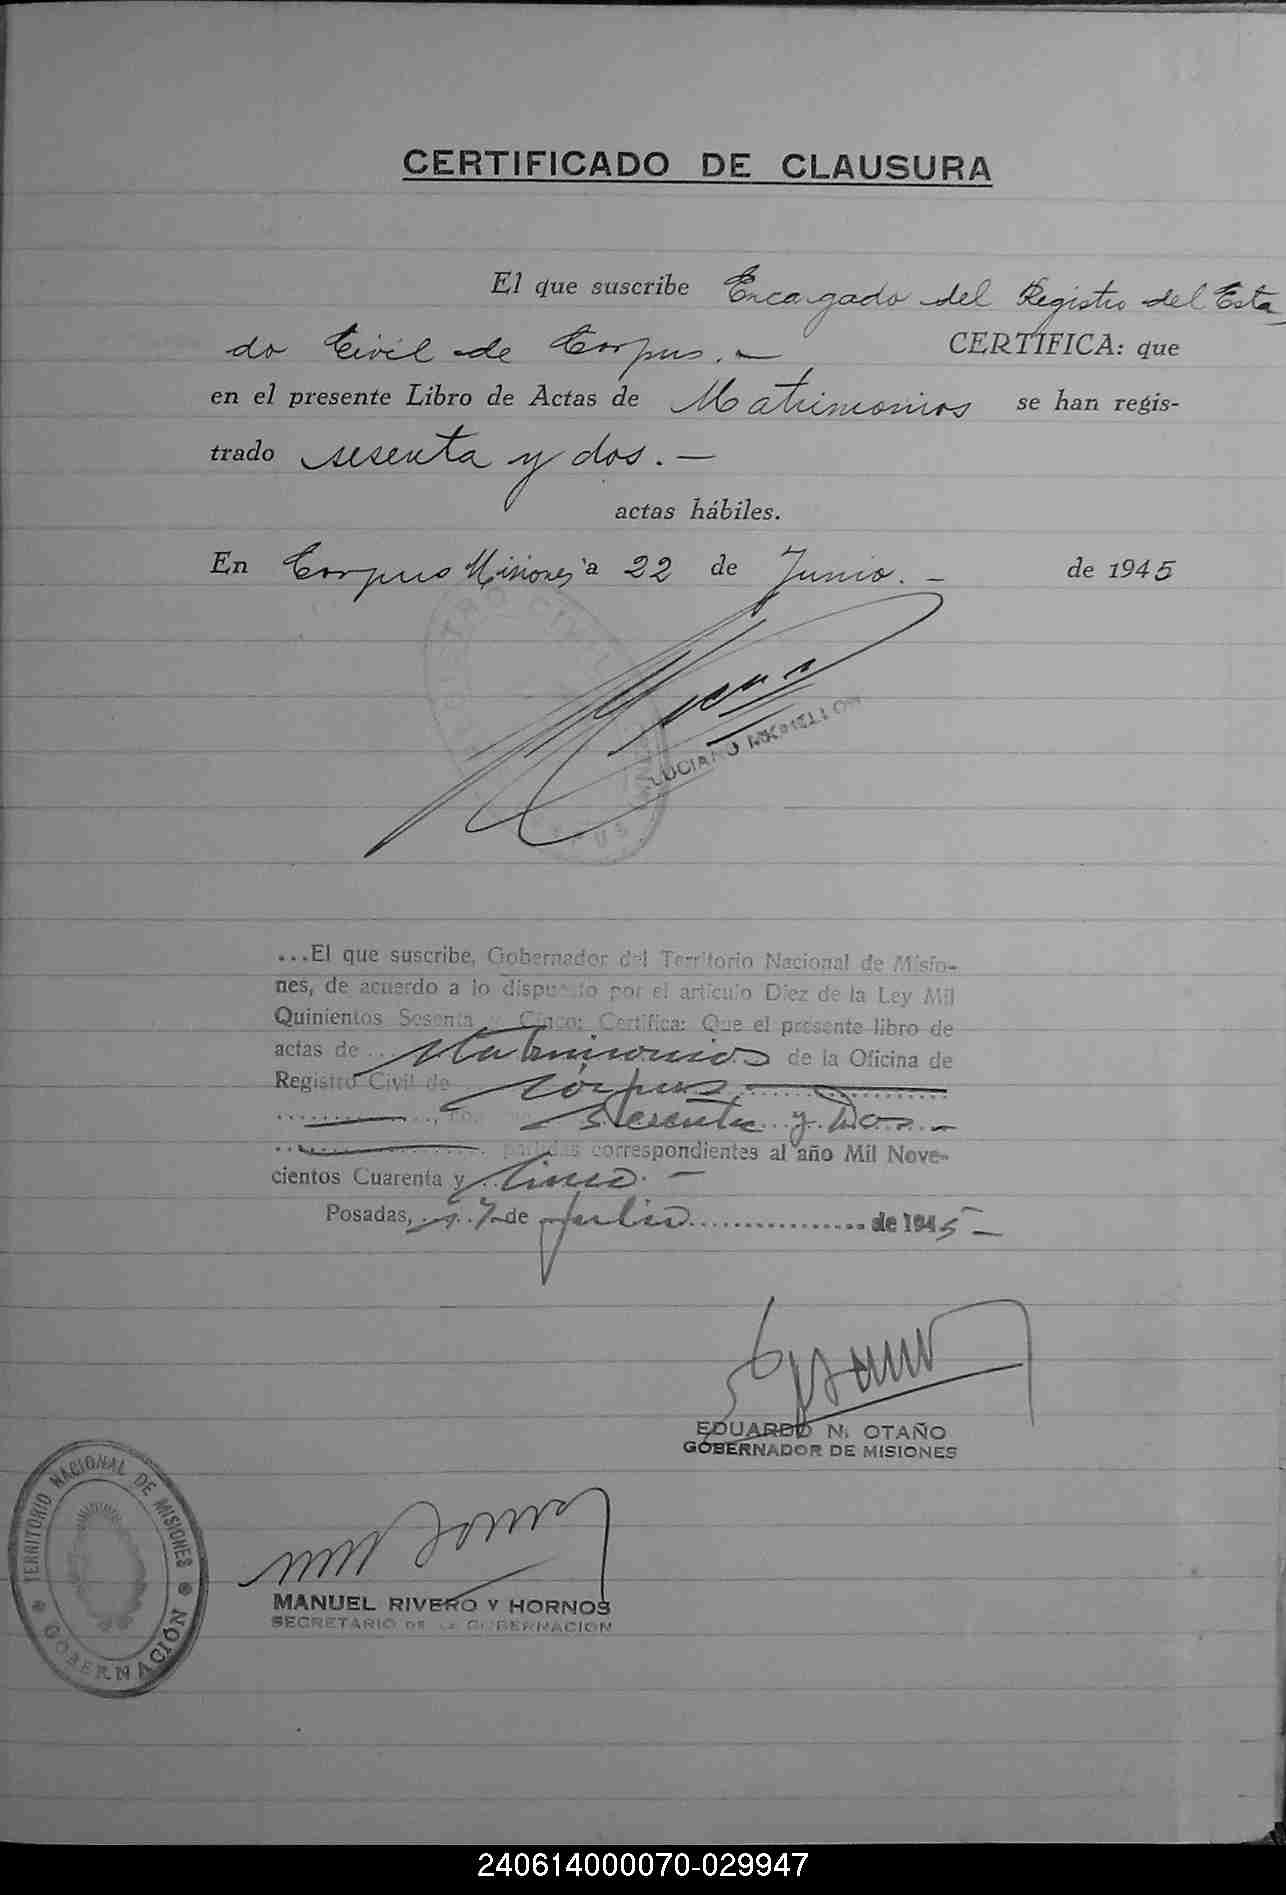 CERTIFICADO DE CLAUSURA
El que suscribe Encargado del Registro del Esta
do Civil de Corpus. — CERTIFICA: que
en el presente Libro de Actas de Matrimonios se han regis-
trado sesenta y dos. —
actas hábiles.
En Corpus Misiones a 22 de Junio. — de 1945
REGISTRO CIVIL
LUCIANO
...El que suscribe, Gobernador del Territorio Nacional de Misio-
nes, de acuerdo a lo dispuesto por el artículo Diez de la Ley Mil
Quinientos Sesenta y Cinco: Certifica: Que el presente libro de
actas de ... Matrimonios de la Oficina de
Registro Civil de Córpus
Sesenta y Dos. —
partidas correspondientes al año Mil Nove-
cientos Cuarenta y Cinco. —
Posadas, 17 de Julio de 1945 —
EDUARDO N. OTAÑO
GOBERNADOR DE MISIONES
TERRITORIO NACIONAL DE MISIONES
GOBERNACIÓN
MANUEL RIVERO Y HORNOS
SECRETARIO DE LA GOBERNACION
240614000070-029947